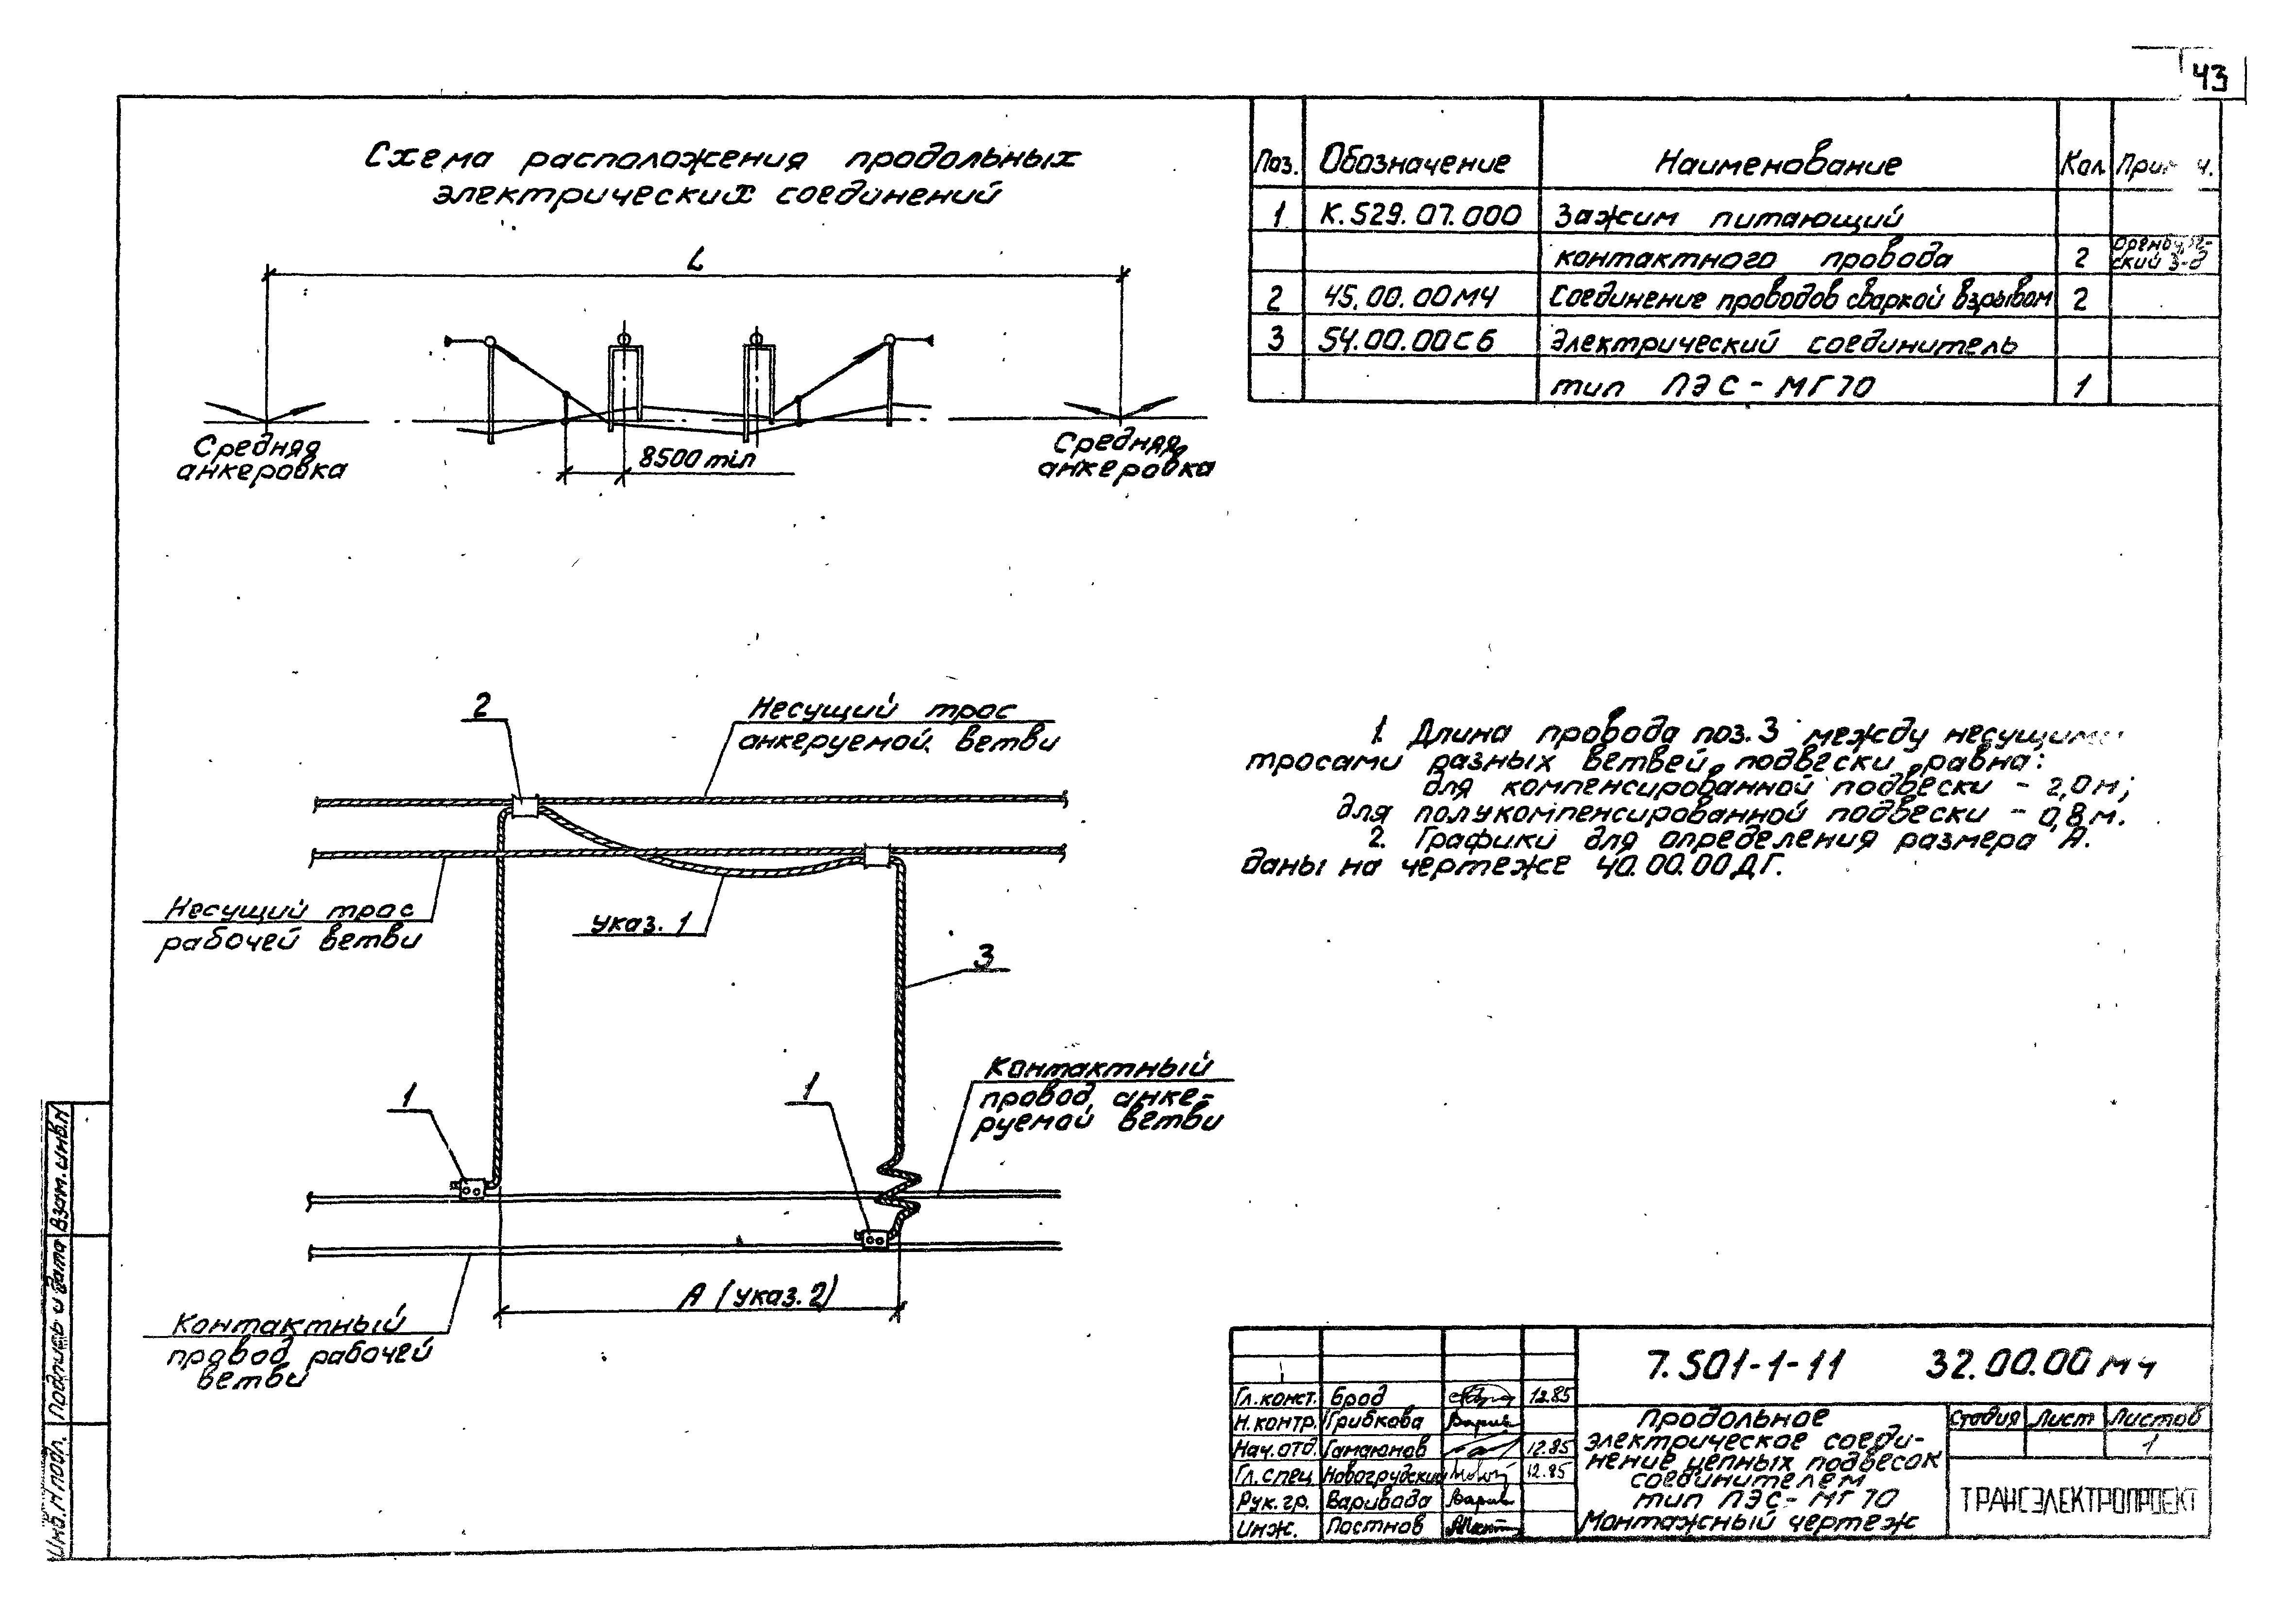 43
Схема расположения продольных
электрических соединений
L
8500 min
Средняя
анкеровка
Средняя
анкеровка
Поз. Обозначение Наименование Кол
1 К.529.07.000 Зажим питающий
контактного провода 2
2 45.00.00МЧ Соединение проводов сваркой взрывом 2
3 54.00.00СБ Электрический соединитель
тип ПЭС-МГ70 1
2
Несущий трос
анкеруемой ветви
Несущий трос
рабочей ветви
указ. 1
3
1
1
Контактный
провод анке-
руемой ветви
А (указ. 2)
Контактный
провод рабочей
ветви
1. Длина провода поз. 3 между несущими
тросами разных ветвей подвески равна:
для компенсированной подвески - 2,0м;
для полукомпенсированной подвески - 0,8м.
2. Графики для определения размера А
даны на чертеже 40.00.00ДГ.
Взам. инв.N
Подпись и дата
Инв. N подл.
7.501-1-11 32.00.00 мч
Гл. конст. Брод 12.85
Н.контр. Грибкова
Нач. отд. Гамаюнов 12.85
Гл. спец. Новогрудский 12.85
Рук. гр. Варивода
Инж. Постнов
Продольное
электрическое соеди-
нение цепных подвесок
соединителем
тип ПЭС-МГ70
Монтажный чертеж
Стадия Лист Листов
1
ТРАНСЭЛЕКТРОПРОЕКТ